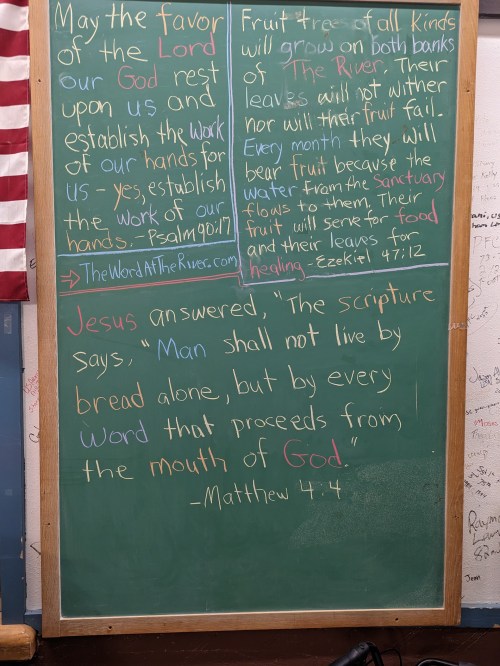 May the favor
of the Lord
our God rest
upon us and
establish the work
of our hands for
us - yes, establish
the work of our
hands. - Psalm 90:17
Fruit trees of all kinds
will grow on both banks
of The River. Their
leaves will not wither
nor will their fruit fail.
Every month they will
bear fruit because the
water from the Sanctuary
flows to them. Their
fruit will serve for food
and their leaves for
healing - Ezekiel 47:12
→ TheWordAtTheRiver.com
Jesus answered, "The scripture
says, "Man shall not live by
bread alone, but by every
word that proceeds from
the mouth of God."
- Matthew 4:4